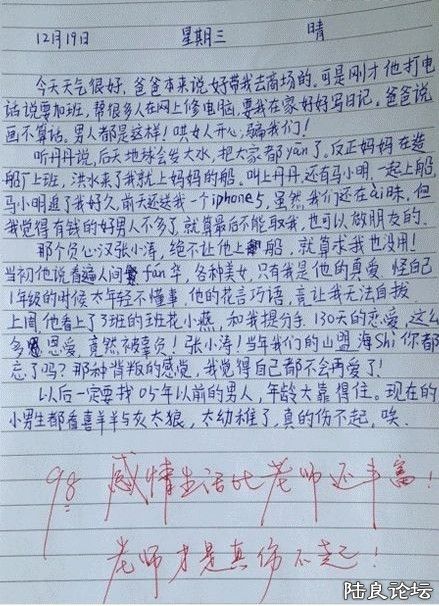 12月19日 星期三 晴
今天天气很好，爸爸本来说好带我去商场的，可是刚才他打电
话说要加班，帮很多人在网上修电脑，要我在家好好写日记，爸爸说
画不算话，男人都是这样！哄女人开心，骗我们！
听丹丹说，后天地球会发大水，把大家都yān了。反正妈妈在造
船厂上班，洪水来了我就上妈妈的船，叫上丹丹，还有马小明，一起上船，
马小明追了我好久，前天还送我一个iphone5，虽然我们还在ài昧，但
我觉得有钱的好男人不多了，就算最后不能取我，也可以做朋友的。
那个负心汉张小涛，绝不让他上船，就算求我也没用！
当初他说看遍人间fán华，各种美女，只有我是他的真爱，怪自己
1年级的时候太年轻不懂事，他的花言巧语，竟让我无法自拔
上周他看上了3班的班花小燕，和我提分手，130天的恋爱，这么
多恩爱，竟然被辜负！张小涛！当年我们的山盟海Shì你都
忘了吗？那种背叛的感觉，我觉得自己都不会再爱了！
以后一定要找05年以前的男人，年龄大靠得住。现在的
小男生都看喜羊羊与灰太狼，太幼稚了，真的伤不起，唉．
98 感情生活比老师还丰富！
老师才是真伤不起！
陆良论坛